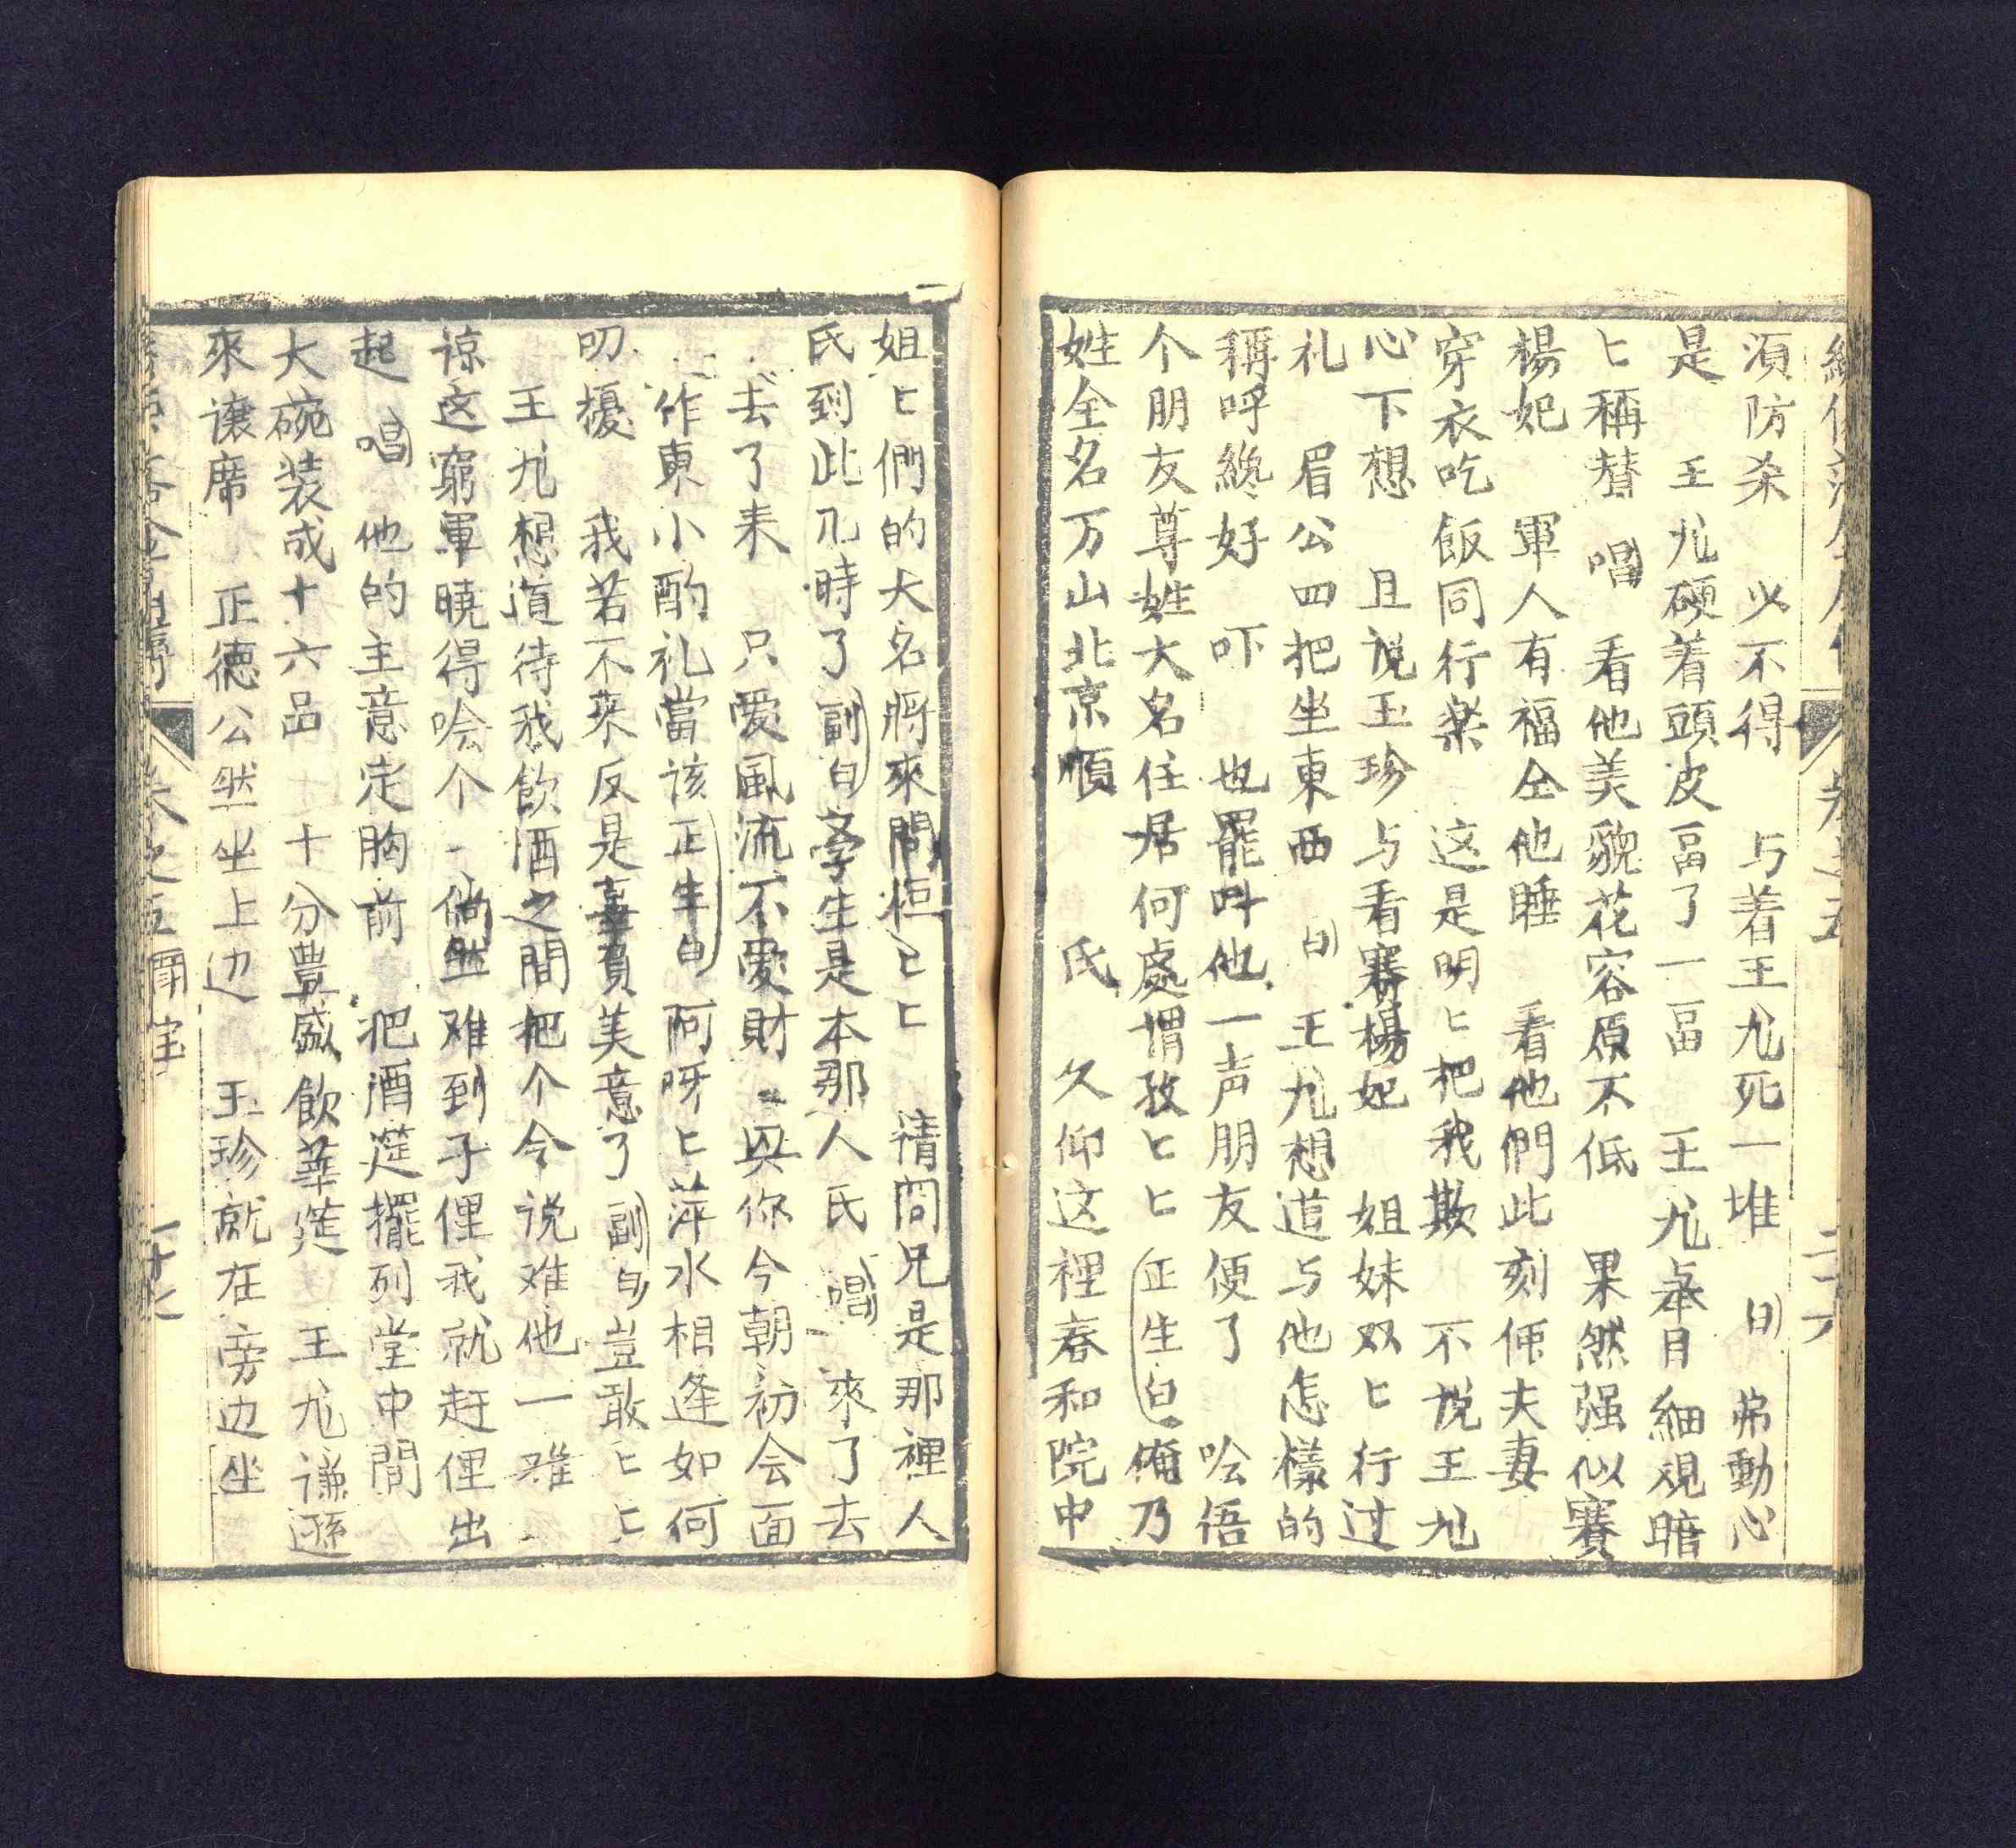 須防杀 必不得 与着王九死一堆 白 弗動心
是 王九硬着頭皮畐了一畐 王九舉目細观暗
匕稱賛 唱 看他美貌花容原不低 果然强似賽
楊妃 軍人有福仝他睡 看他們此刻俩夫妻
穿衣吃飯同行楽 这是明匕把我欺 不说王九
心下想 且说玉珍与看賽楊妃 姐妹双匕行过
礼 眉公四把坐東西 白 王九想道与他怎樣的
稱呼終好 吓 也罷呌他一声朋友便了 哙㑄
个朋友尊姓大名住居何處謂教匕匕 正生白 俺乃
姓全名万山北京順 氏 久仰这裡春和院中
姐匕們的大名將來問恒匕匕 請问兄是那裡人
氏到此几時了 副白 李生是本那人氏 唱 來了去
去了来 只愛風流不愛財 與你今朝初会面
作東小酌礼當该 正生白 阿呀匕萍水相逢如何
叨擾 我若不来反是辜負美意了 副白 豈敢匕匕
王九想道待我飲酒之間把个令说难他一难
谅这窮軍曉得哙个一倘然难到子俚我就赶俚出
起 唱 他的主意定胸前 把酒筵擺列堂中間
大碗装成十六品 十分豊盛飲華筵 王九谦遜
來讓席 正德公然坐上边 玉珍就在旁边坐
卷之五 開宝 二十七